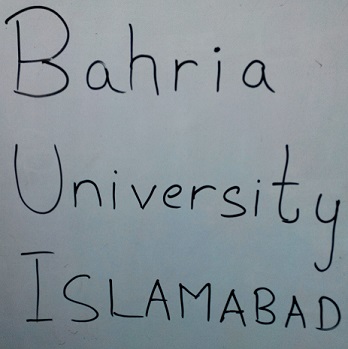 Bahria
University
ISLAMABAD